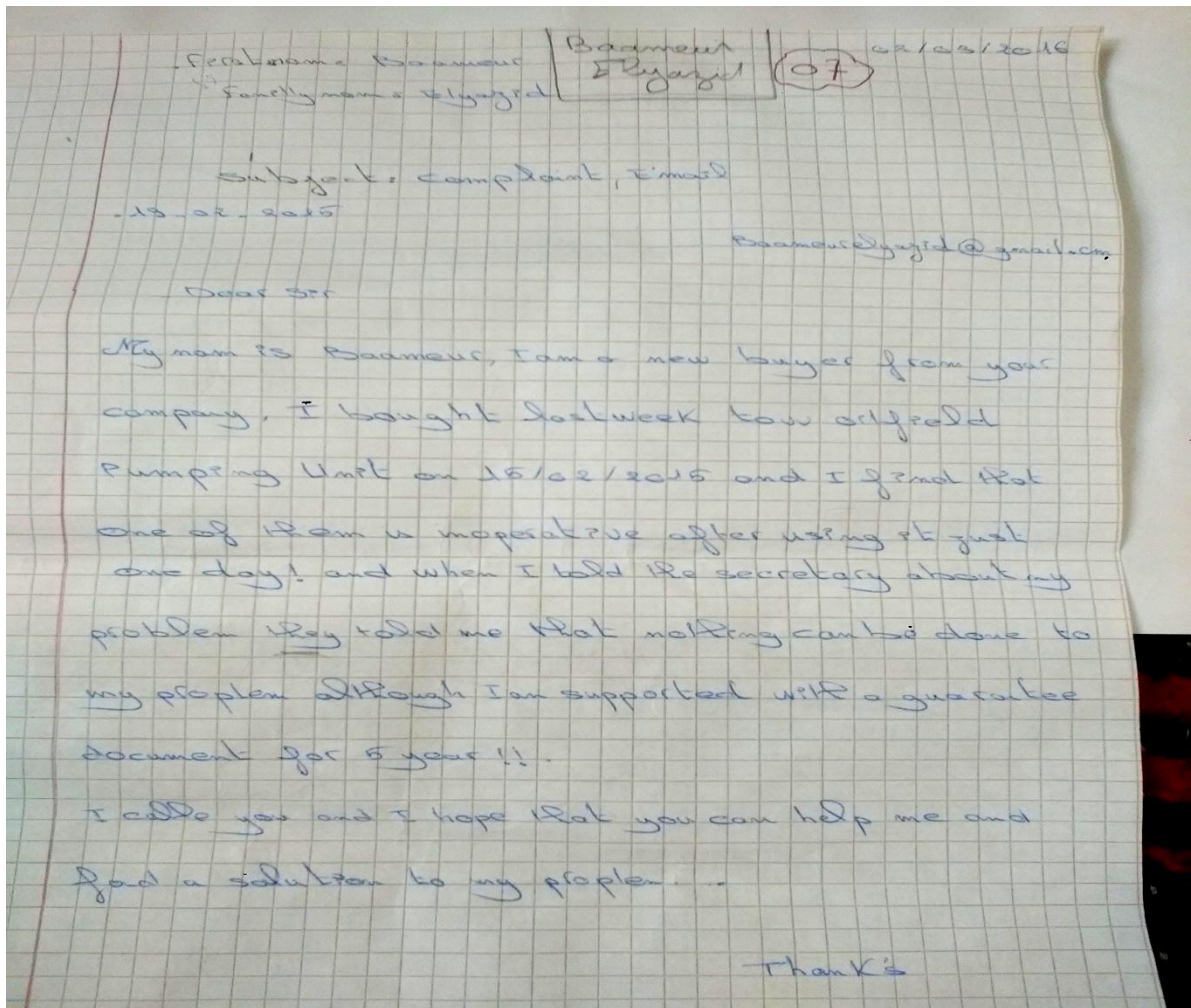 Ferstname Baameur
Baameur
Elyazid
07
02/03/2016
Familly name Elyazid
Subject: complaint, Email
-19-02-2015
BaameurElyazid@gmail.com
Dear Sir
My nam is Baameur, I am a new buyer from your
company. I bought last week tow oilfield
Pumping Unit on 15/02/2015 and I find that
one of them is inoperative after using it just
one day! and when I told the secretary about my
problem they told me that nothing can be done to
my proplem although I am supported with a guarantee
document for 5 year !!.
I calle you and I hope that you can help me and
find a solution to my proplem...
Thank's